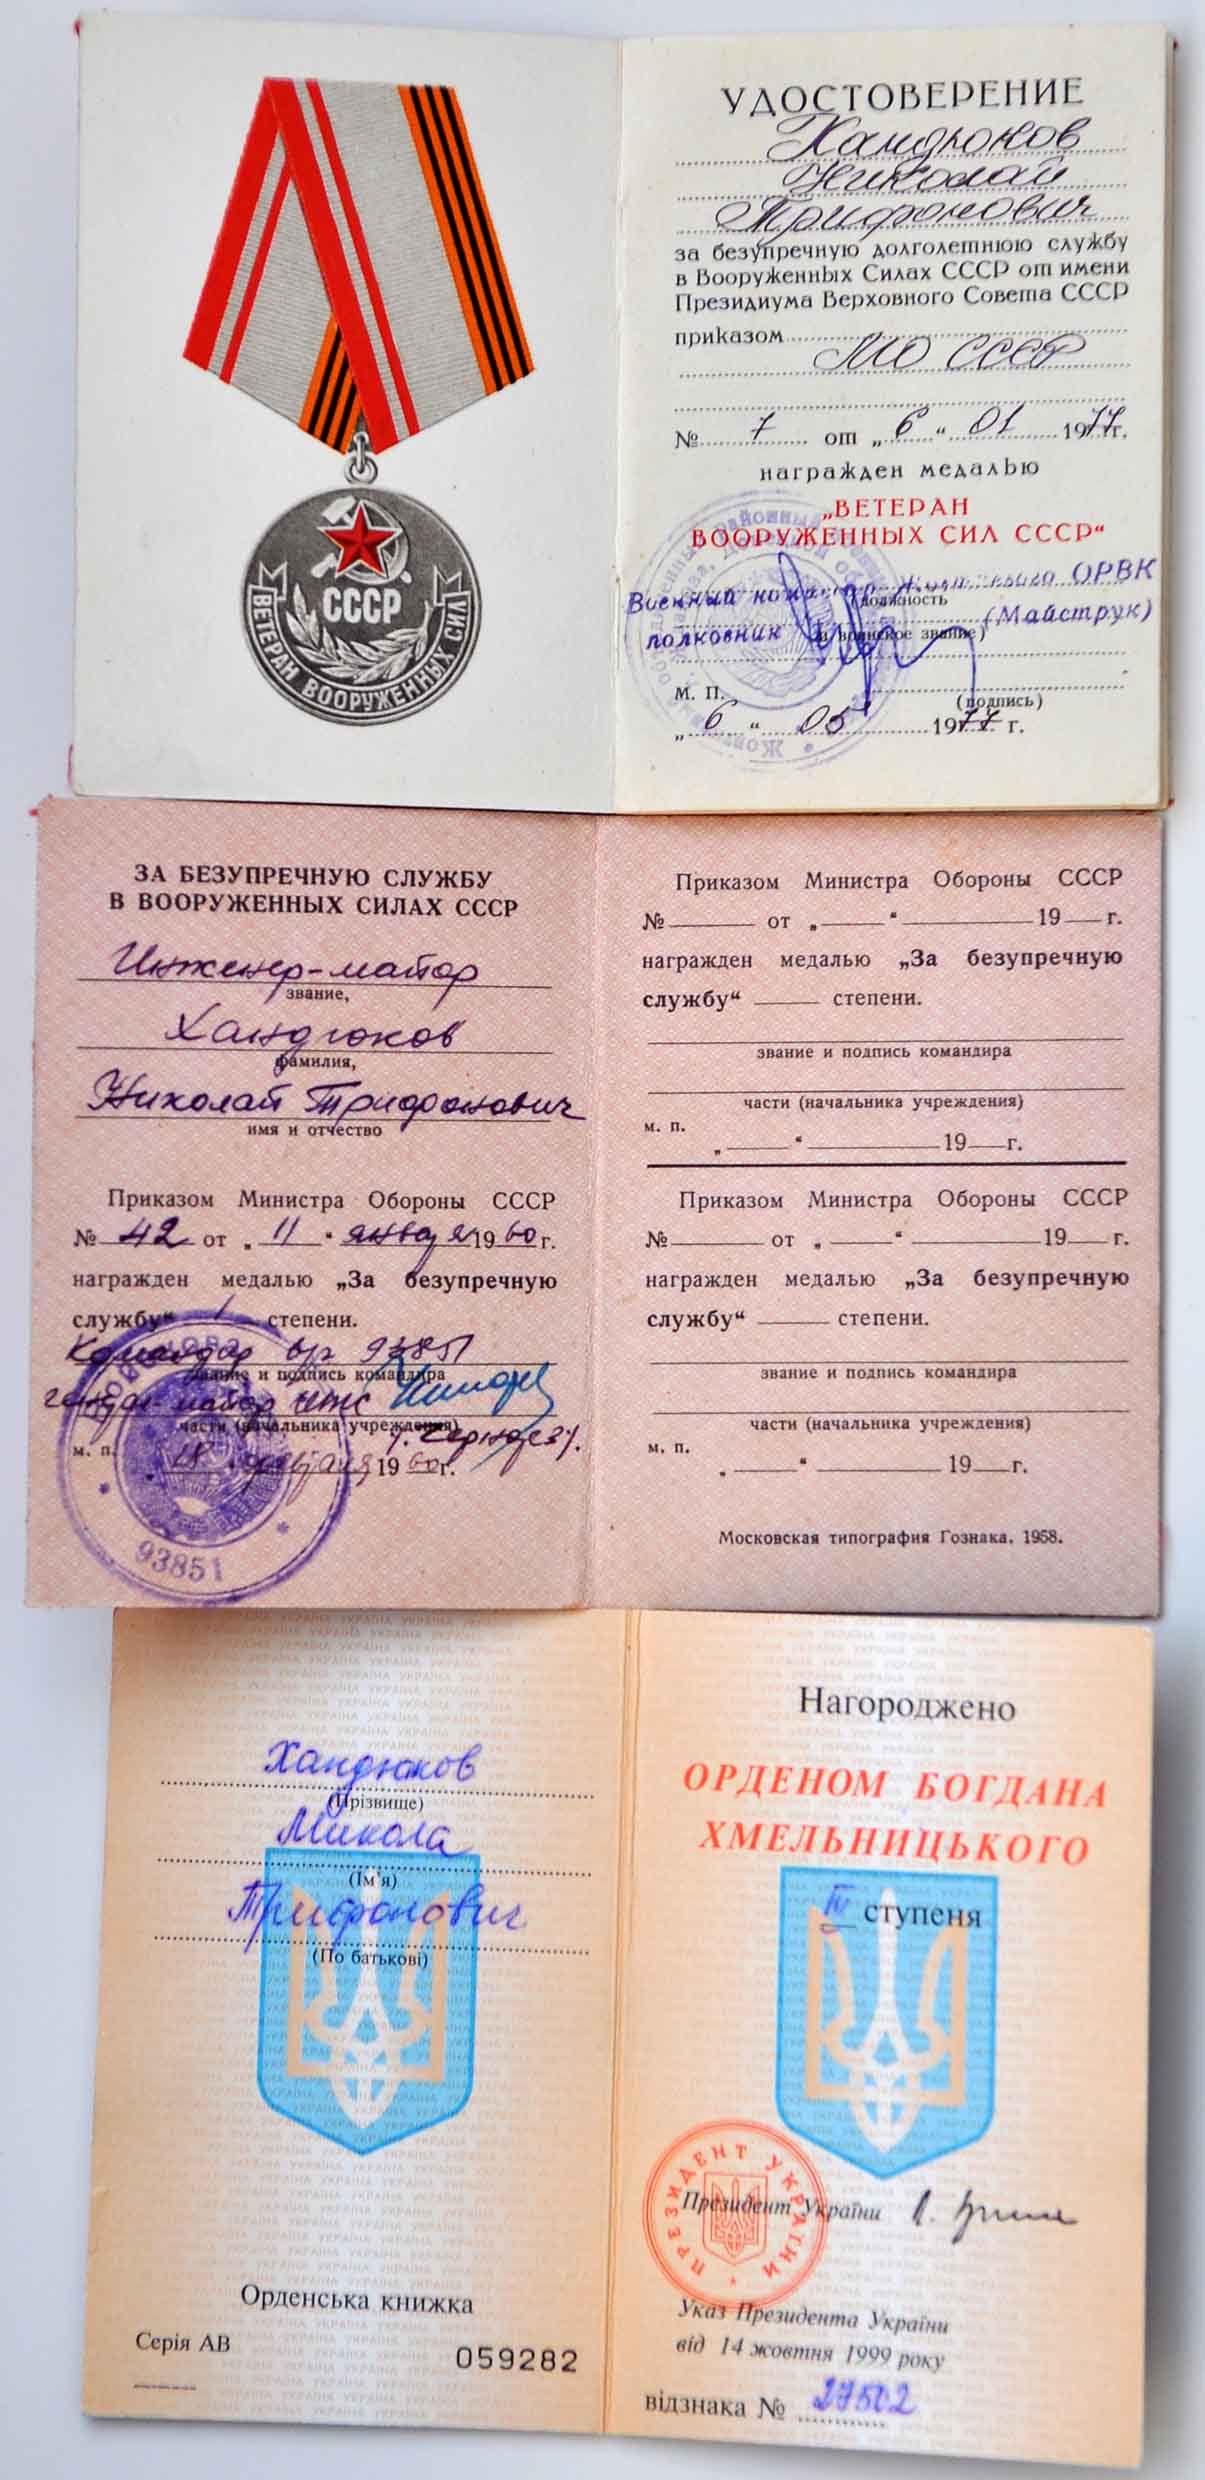 СССР
ВЕТЕРАН ВООРУЖЕННЫХ СИЛ
УДОСТОВЕРЕНИЕ
Хандюков
Николай
Трифонович
за безупречную долголетнюю службу
в Вооруженных Силах СССР от имени
Президиума Верховного Совета СССР
приказом
МО СССР
№ 7 от „6“ 01 1977г.
награжден медалью
„ВЕТЕРАН
ВООРУЖЕННЫХ СИЛ СССР“
Военный ОРВК
(должность
полковник (Майструк)
и воинское звание)
М. П.
(подпись)
„6“ 05 1977 г.
ЗА БЕЗУПРЕЧНУЮ СЛУЖБУ
В ВООРУЖЕННЫХ СИЛАХ СССР
Инженер-майор
звание,
Хандюков
фамилия,
Николай Трифонович
имя и отчество
Приказом Министра Обороны СССР
№ 42 от „11“ января 1960г.
награжден медалью „За безупречную
службу“ I степени.
Командир в/ч 93851
звание и подпись командира
генерал-майор ИТС
части (начальника учреждения)
м. п. „18“ февраля 1960г.
93851
Приказом Министра Обороны СССР
№ от „ “ 19 г.
награжден медалью „За безупречную
службу“ степени.
звание и подпись командира
части (начальника учреждения)
м. п.
„ “ 19 г.
Приказом Министра Обороны СССР
№ от „ “ 19 г.
награжден медалью „За безупречную
службу“ степени.
звание и подпись командира
части (начальника учреждения)
м. п.
„ “ 19 г.
Московская типография Гознака. 1958.
Хандюков
(Прізвище)
Микола
(Ім'я)
Трифонович
(По батькові)
Орденська книжка
Серія АВ 059282
Нагороджено
ОРДЕНОМ БОГДАНА
ХМЕЛЬНИЦЬКОГО
III ступеня
ПРЕЗИДЕНТ УКРАЇНИ
Президент України
Указ Президента України
від 14 жовтня 1999 року
відзнака № 27502